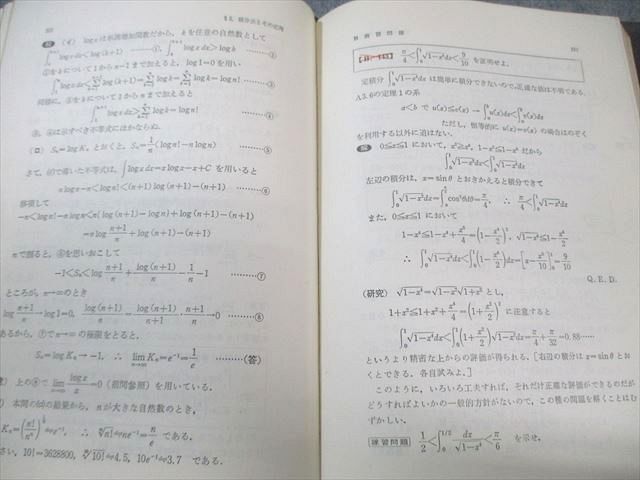 322 §3. 積分法とその応用
(イ) log x は単調増加関数だから, k を任意の自然数として
∫ₖᵏ⁺¹ log x dx < log(k+1) ……①, ∫ₖᵏ⁺¹ log x dx > log k ………②
①を k について 1 から n−1 まで加えると, log 1=0 を用い
同様に, ②を k について 1 から n まで加えると
③, ④は示すべき不等式にほかならぬ.
(ロ) Sₙ=log Kₙ とおくと, Sₙ=1/n (log n!−n log n) ………⑤
さて, (イ)で導いた不等式は, ∫log x dx=x log x−x+C を用いると
n log n−n<log n!<(n+1) log(n+1)−(n+1) ………⑥
移項して
−n<log n!−n log n<n(log(n+1)−log n)+log(n+1)−(n+1)
=n log (n+1)/n+log(n+1)−(n+1)
n で割ると, ⑤を思いおこして
−1<Sₙ<log (n+1)/n+log(n+1)/n−1/n−1 ………⑦
ところが, n→∞ のとき
log (n+1)/n→log 1=0, log(n+1)/n=log(n+1)/(n+1)・(n+1)/n→0 ………⑧
あるから, ⑦で n→∞ の極限をとると,
Sₙ=log Kₙ→−1, ∴ lim n→∞ Kₙ=e⁻¹=1/e ………(答)
上の⑧で lim x→∞ log x/x=0 (前問参照) を用いている.
本問の(ロ)の結果から, n が大きな自然数のとき,
Kₙ=(n!/nⁿ)^(1/n)≒e⁻¹, ∴ ⁿ√n!≒ne⁻¹=n/e である.
さい, 10!=3628800, ¹⁰√10!≒4.5, 10e⁻¹≒3.7 である.
例題 π/4<∫₀¹√(1−x⁴)dx<9/10 を証明せよ.
定積分 ∫₀¹√(1−x⁴)dx は簡単に積分できないので, 正確な値は不明である.
A3.6の定理1の系
a<b で u(x)≦v(x) → ∫ₐᵇu(x)dx<∫ₐᵇv(x)dx
ただし, 恒等的に u(x)=v(x) の場合はのぞく
を利用する以外に道はない.
0≦x≦1 において, x²≧x⁴, 1−x²≦1−x⁴ だから
∫₀¹√(1−x²)dx<∫₀¹√(1−x⁴)dx
左辺の積分は, x=sin θ とおきかえると積分できて
∫₀¹√(1−x²)dx=∫₀^(π/2)cos²θdθ=π/4, ∴ π/4<∫₀¹√(1−x⁴)dx
また, 0≦x≦1 において
1−x⁴≦1−x⁴+x⁸/4=(1−x⁴/2)², √(1−x⁴)≦1−x⁴/2
∴ ∫₀¹√(1−x⁴)dx<∫₀¹(1−x⁴/2)dx=[x−x⁵/10]₀¹=9/10
Q. E. D.
(研究) √(1−x⁴)=√(1−x²)√(1+x²) とし,
1+x²≦1+x²+x⁴/4=(1+x²/2)² に注意すると
∫₀¹√(1−x⁴)dx<∫₀¹(1+x²/2)√(1−x²)dx=π/4+π/32=0.88……
というより精密な上からの評価が得られる. [右辺の積分は x=sin θ とお
くとできる. 各自試みよ.]
このように, いろいろ工夫すれば, それだけ正確な評価ができるのだが
どうすればよいかの一般的方針がないので, この種の問題を解くことはむ
ずかしい.
練習問題 1/2<∫₀^(1/2) dx/√(1−x⁴)<π/6 を示せ.